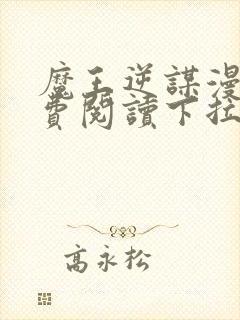 魔王逆謀漫
費閱讀下拉
高永松